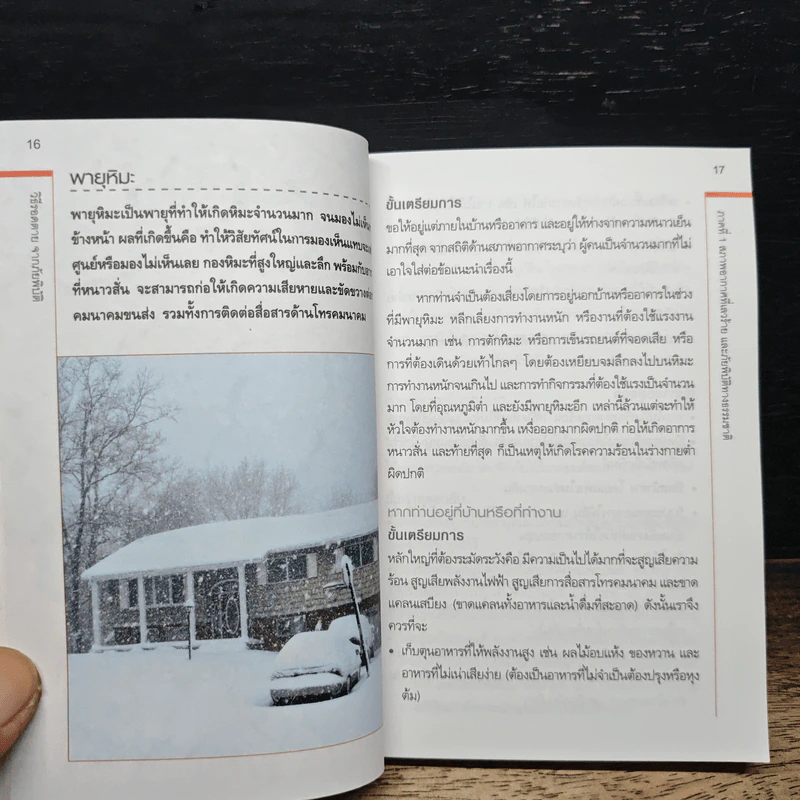 16
วิธีรอดตาย จากภัยพิบัติ
พายุหิมะ
พายุหิมะเป็นพายุที่ทำให้เกิดหิมะจำนวนมาก จนมองไม่เห็น
ข้างหน้า ผลที่เกิดขึ้นคือ ทำให้วิสัยทัศน์ในการมองเห็นแทบจะ
ศูนย์หรือมองไม่เห็นเลย กองหิมะที่สูงใหญ่และลึก พร้อมกับ
ที่หนาวสั่น จะสามารถก่อให้เกิดความเสียหายและขัดขวาง
คมนาคมขนส่ง รวมทั้งการติดต่อสื่อสารด้านโทรคมนาคม
17
ภาคที่ 1 สภาพอากาศที่เลวร้าย และภัยพิบัติทางธรรมชาติ
ขั้นเตรียมการ
ขอให้อยู่แต่ภายในบ้านหรืออาคาร และอยู่ให้ห่างจากความหนาวเย็น
มากที่สุด จากสถิติด้านสภาพอากาศระบุว่า ผู้คนเป็นจำนวนมากที่ไม่
เอาใจใส่ต่อข้อแนะนำเรื่องนี้
หากท่านจำเป็นต้องเสี่ยงโดยการอยู่นอกบ้านหรืออาคารในช่วง
ที่มีพายุหิมะ หลีกเลี่ยงการทำงานหนัก หรืองานที่ต้องใช้แรงงาน
จำนวนมาก เช่น การตักหิมะ หรือการเข็นรถยนต์ที่จอดเสีย หรือ
การที่ต้องเดินด้วยเท้าไกลๆ โดยต้องเหยียบจมลึกลงไปบนหิมะ
การทำงานหนักจนเกินไป และการทำกิจกรรมที่ต้องใช้แรงเป็นจำนวน
มาก โดยที่อุณหภูมิต่ำ และยังมีพายุหิมะอีก เหล่านี้ล้วนแต่จะทำให้
หัวใจต้องทำงานหนักมากขึ้น เหงื่อออกมากผิดปกติ ก่อให้เกิดอาการ
หนาวสั่น และท้ายที่สุด ก็เป็นเหตุให้เกิดโรคความร้อนในร่างกายต่ำ
ผิดปกติ
หากท่านอยู่ที่บ้านหรือที่ทำงาน
ขั้นเตรียมการ
หลักใหญ่ที่ต้องระมัดระวังคือ มีความเป็นไปได้มากที่จะสูญเสียความ
ร้อน สูญเสียพลังงานไฟฟ้า สูญเสียการสื่อสารโทรคมนาคม และขาด
แคลนเสบียง (ขาดแคลนทั้งอาหารและน้ำดื่มที่สะอาด) ดังนั้นเราจึง
ควรที่จะ
• เก็บตุนอาหารที่ให้พลังงานสูง เช่น ผลไม้อบแห้ง ของหวาน และ
อาหารที่ไม่เน่าเสียง่าย (ต้องเป็นอาหารที่ไม่จำเป็นต้องปรุงหรือหุง
ต้ม)